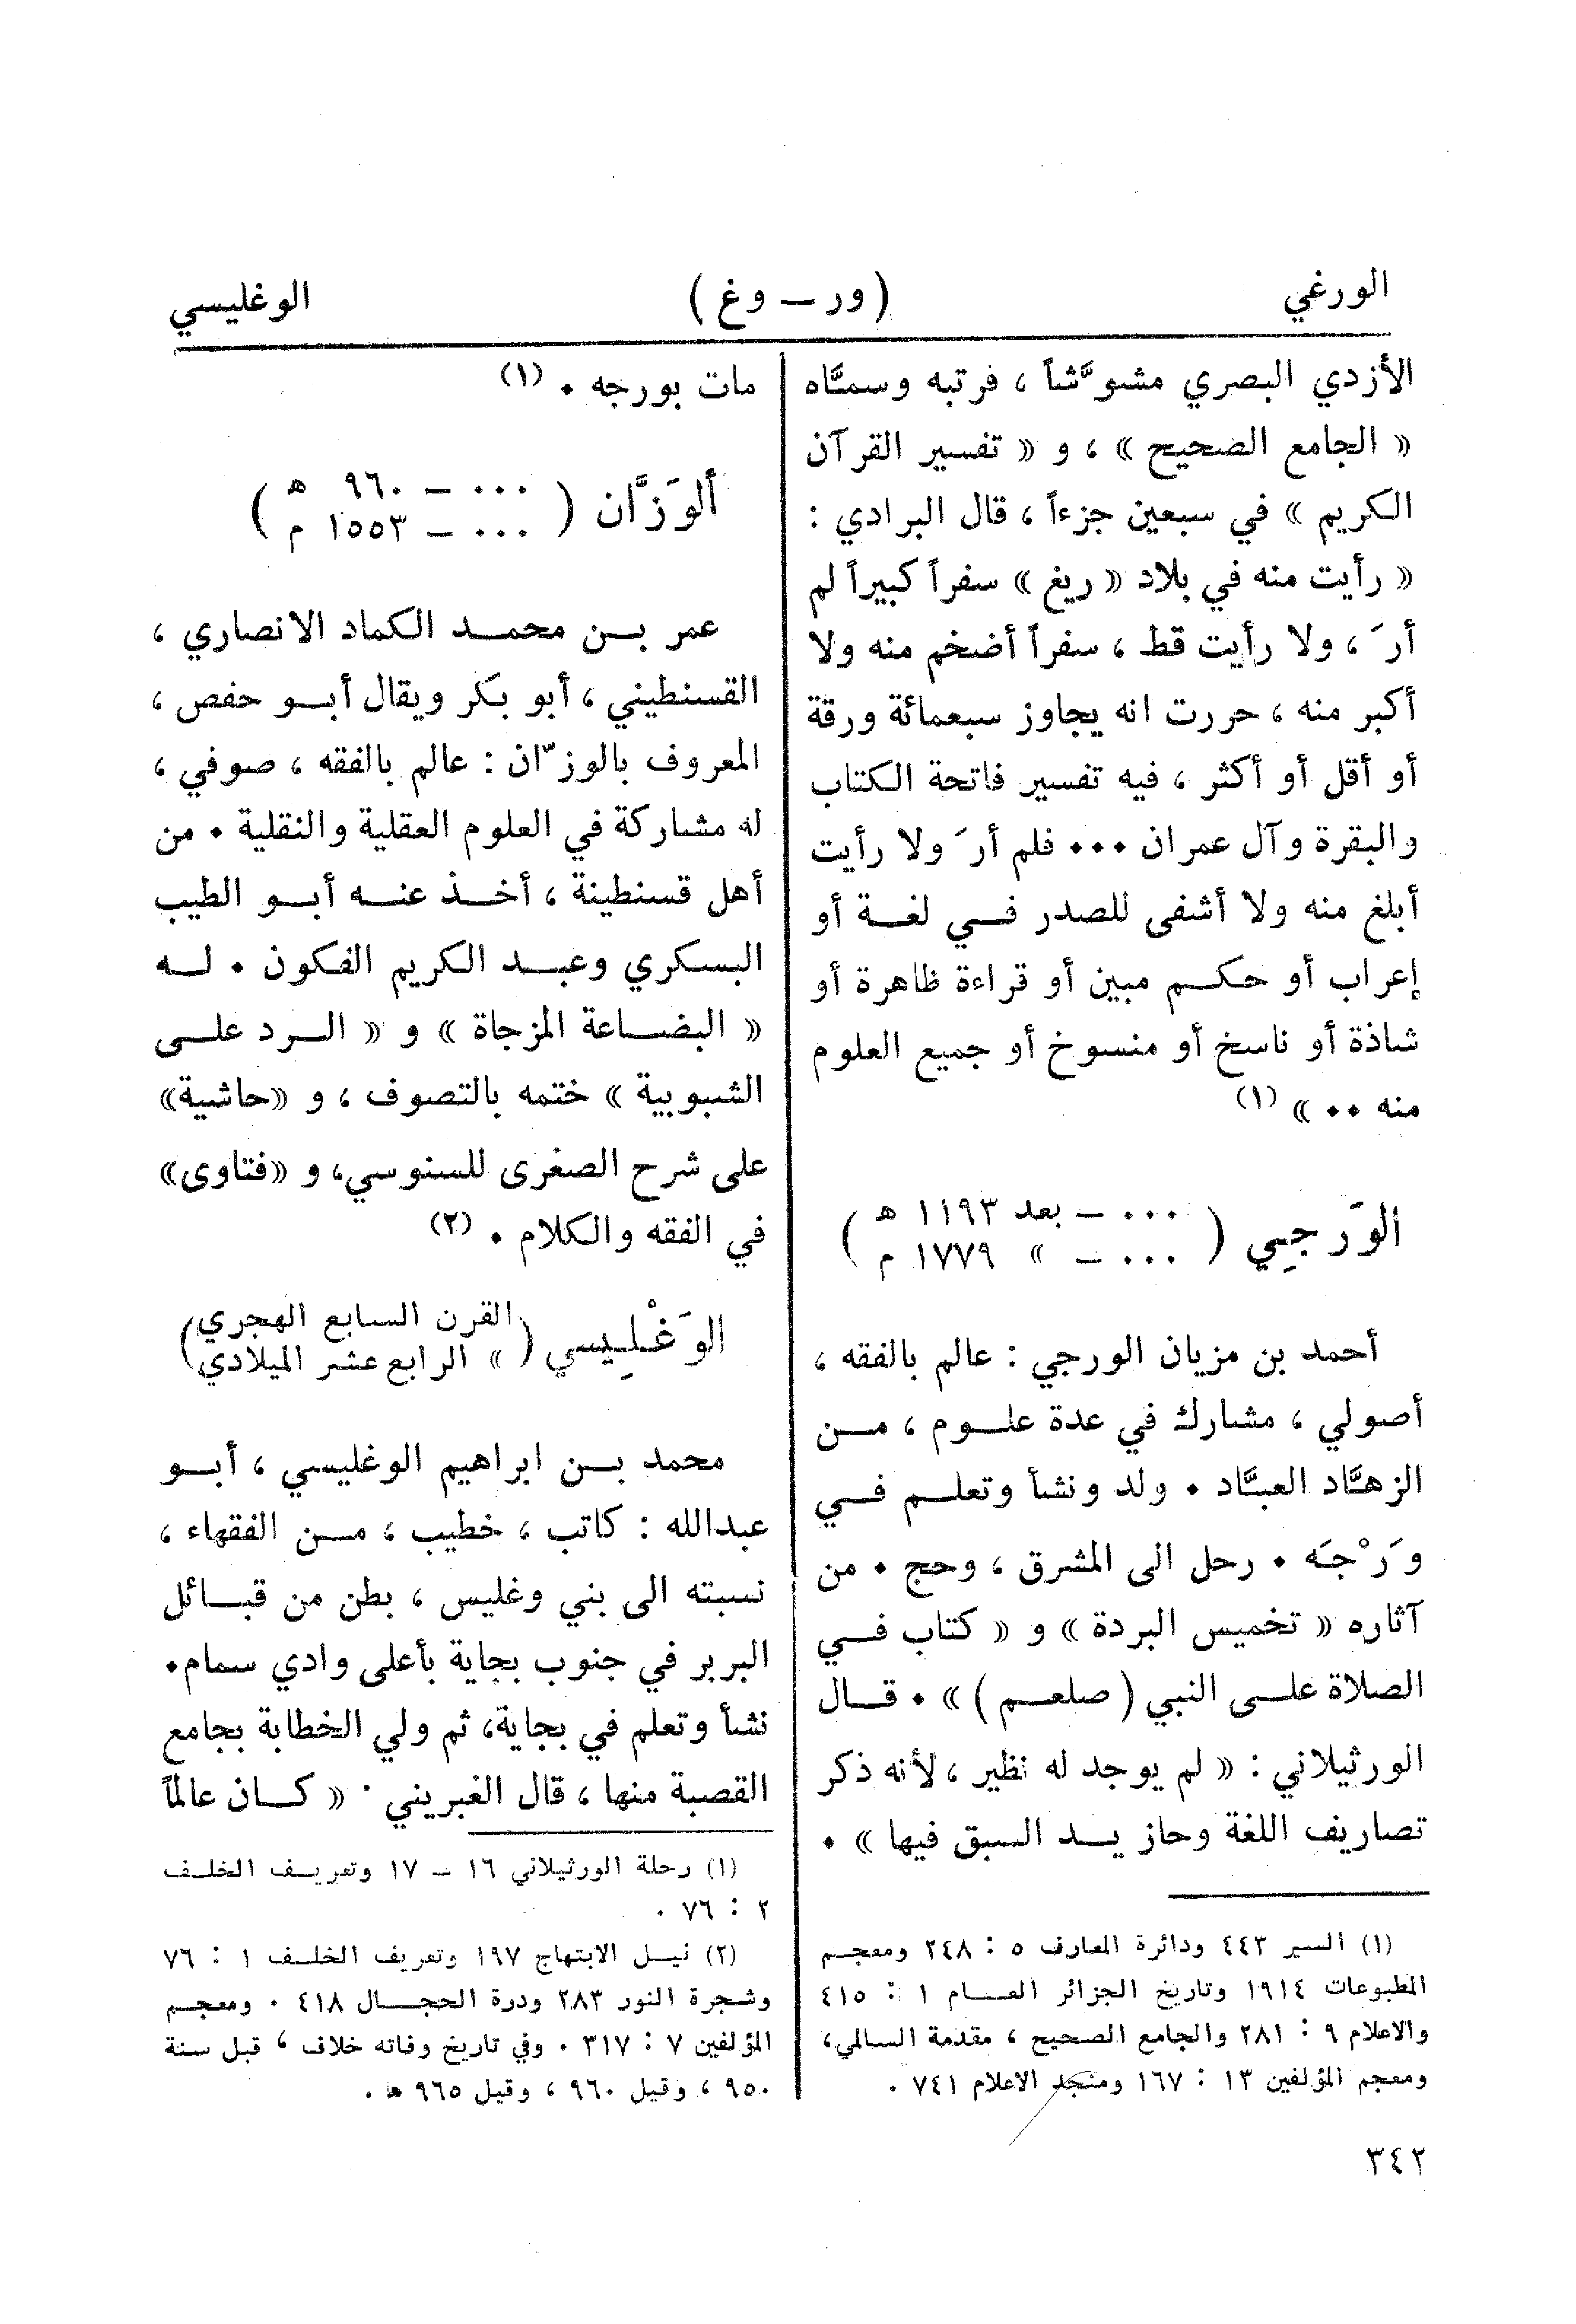 الورغي
( ور – وغ )
الوغليسي
الأزدي البصري مشوَّشاً ، فرتبه وسمَّاه
« الجامع الصحيح » ، و « تفسير القرآن
الكريم » في سبعين جزءاً ، قال البرادي :
« رأيت منه في بلاد « ريغ » سفراً كبيراً لم
أرَ ، ولا رأيت قط ، سفراً أضخم منه ولا
أكبر منه ، حررت انه يجاوز سبعمائة ورقة
أو أقل أو أكثر ، فيه تفسير فاتحة الكتاب
والبقرة وآل عمران ٠٠٠ فلم أرَ ولا رأيت
أبلغ منه ولا أشفى للصدر في لغة أو
إعراب أو حكم مبين أو قراءة ظاهرة أو
شاذة أو ناسخ أو منسوخ أو جميع العلوم
منه ٠٠ » (١)
الوَرجِي ( ٠٠٠ – بعد ١١٩٣ هـ
٠٠٠ – » ١٧٧٩ م )
أحمد بن مزيان الورجي : عالم بالفقه ،
أصولي ، مشارك في عدة علوم ، من
الزهَّاد العبَّاد ٠ ولد ونشأ وتعلم في
وَرْجَه ٠ رحل الى المشرق ، وحج ٠ من
آثاره « تخميس البردة » و « كتاب في
الصلاة على النبي ( صلعم ) » ٠ قال
الورثيلاني : « لم يوجد له نظير ، لأنه ذكر
تصاريف اللغة وحاز يد السبق فيها » ٠
(١) السير ٤٤٣ ودائرة المعارف ٥ : ٢٤٨ ومعجم
المطبوعات ١٩١٤ وتاريخ الجزائر العام ١ : ٤١٥
والاعلام ٩ : ٢٨١ والجامع الصحيح ، مقدمة السالمي،
ومعجم المؤلفين ١٣ : ١٦٧ ومنجد الاعلام ٧٤١ ٠
مات بورجه ٠ (١)
ألوَزَّان ( ٠٠٠ – ٩٦٠ هـ
٠٠٠ – ١٥٥٣ م )
عمر بن محمد الكماد الانصاري ،
القسنطيني ، أبو بكر ويقال أبو حفص ،
المعروف بالوزّان : عالم بالفقه ، صوفي ،
له مشاركة في العلوم العقلية والنقلية ٠ من
أهل قسنطينة ، أخذ عنه أبو الطيب
البسكري وعبد الكريم الفكون ٠ له
« البضاعة المزجاة » و « الرد على
الشبوبية » ختمه بالتصوف ، و «حاشية»
على شرح الصغرى للسنوسي، و «فتاوى»
في الفقه والكلام ٠ (٢)
الوَغْلِيسي ( القرن السابع الهجري
» الرابع عشر الميلادي )
محمد بن ابراهيم الوغليسي ، أبو
عبدالله : كاتب ، خطيب ، من الفقهاء ،
نسبته الى بني وغليس ، بطن من قبائل
البربر في جنوب بجاية بأعلى وادي سمام٠
نشأ وتعلم في بجاية، ثم ولي الخطابة بجامع
القصبة منها ، قال الغبريني ٠ « كان عالماً
(١) رحلة الورثيلاني ١٦ – ١٧ وتعريف الخلف
٢ : ٧٦ ٠
(٢) نيل الابتهاج ١٩٧ وتعريف الخلف ١ : ٧٦
وشجرة النور ٢٨٣ ودرة الحجال ٤١٨ ٠ ومعجم
المؤلفين ٧ : ٣١٧ ٠ وفي تاريخ وفاته خلاف ، قبل سنة
٩٥٠ ، وقيل ٩٦٠ ، وقيل ٩٦٥ هـ ٠
٣٤٢